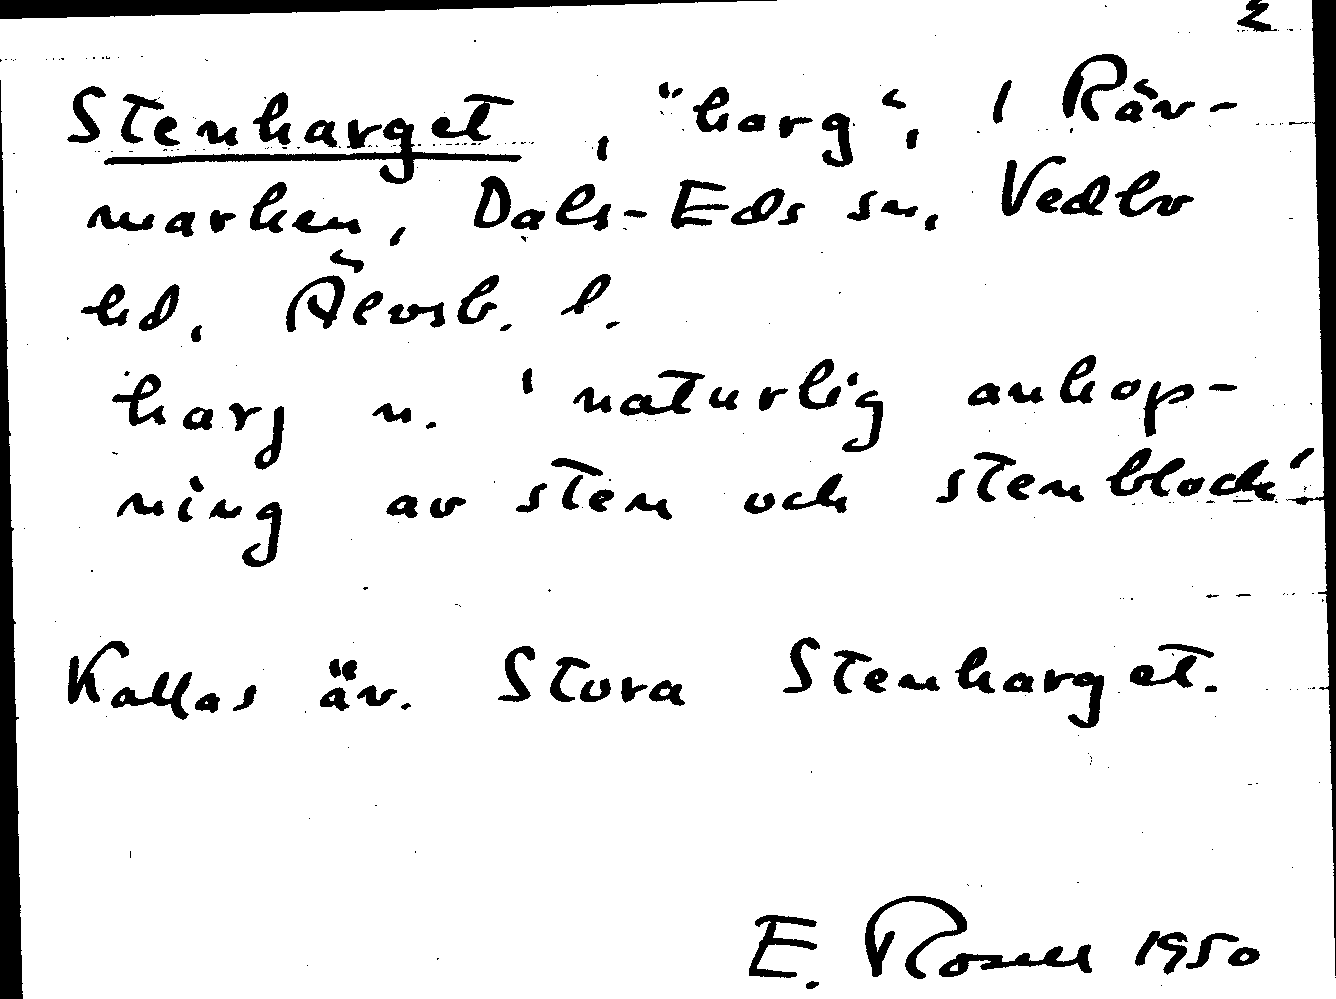 2
Stenharget, "harg", i Räv-
marken, Dals-Eds sn, Vedbo
hd, Älvsb. l.
harj n. 'naturlig anhop-
ning av sten och stenblock'
Kallas äv. Stora Stenharget.
E. Rosell 1950